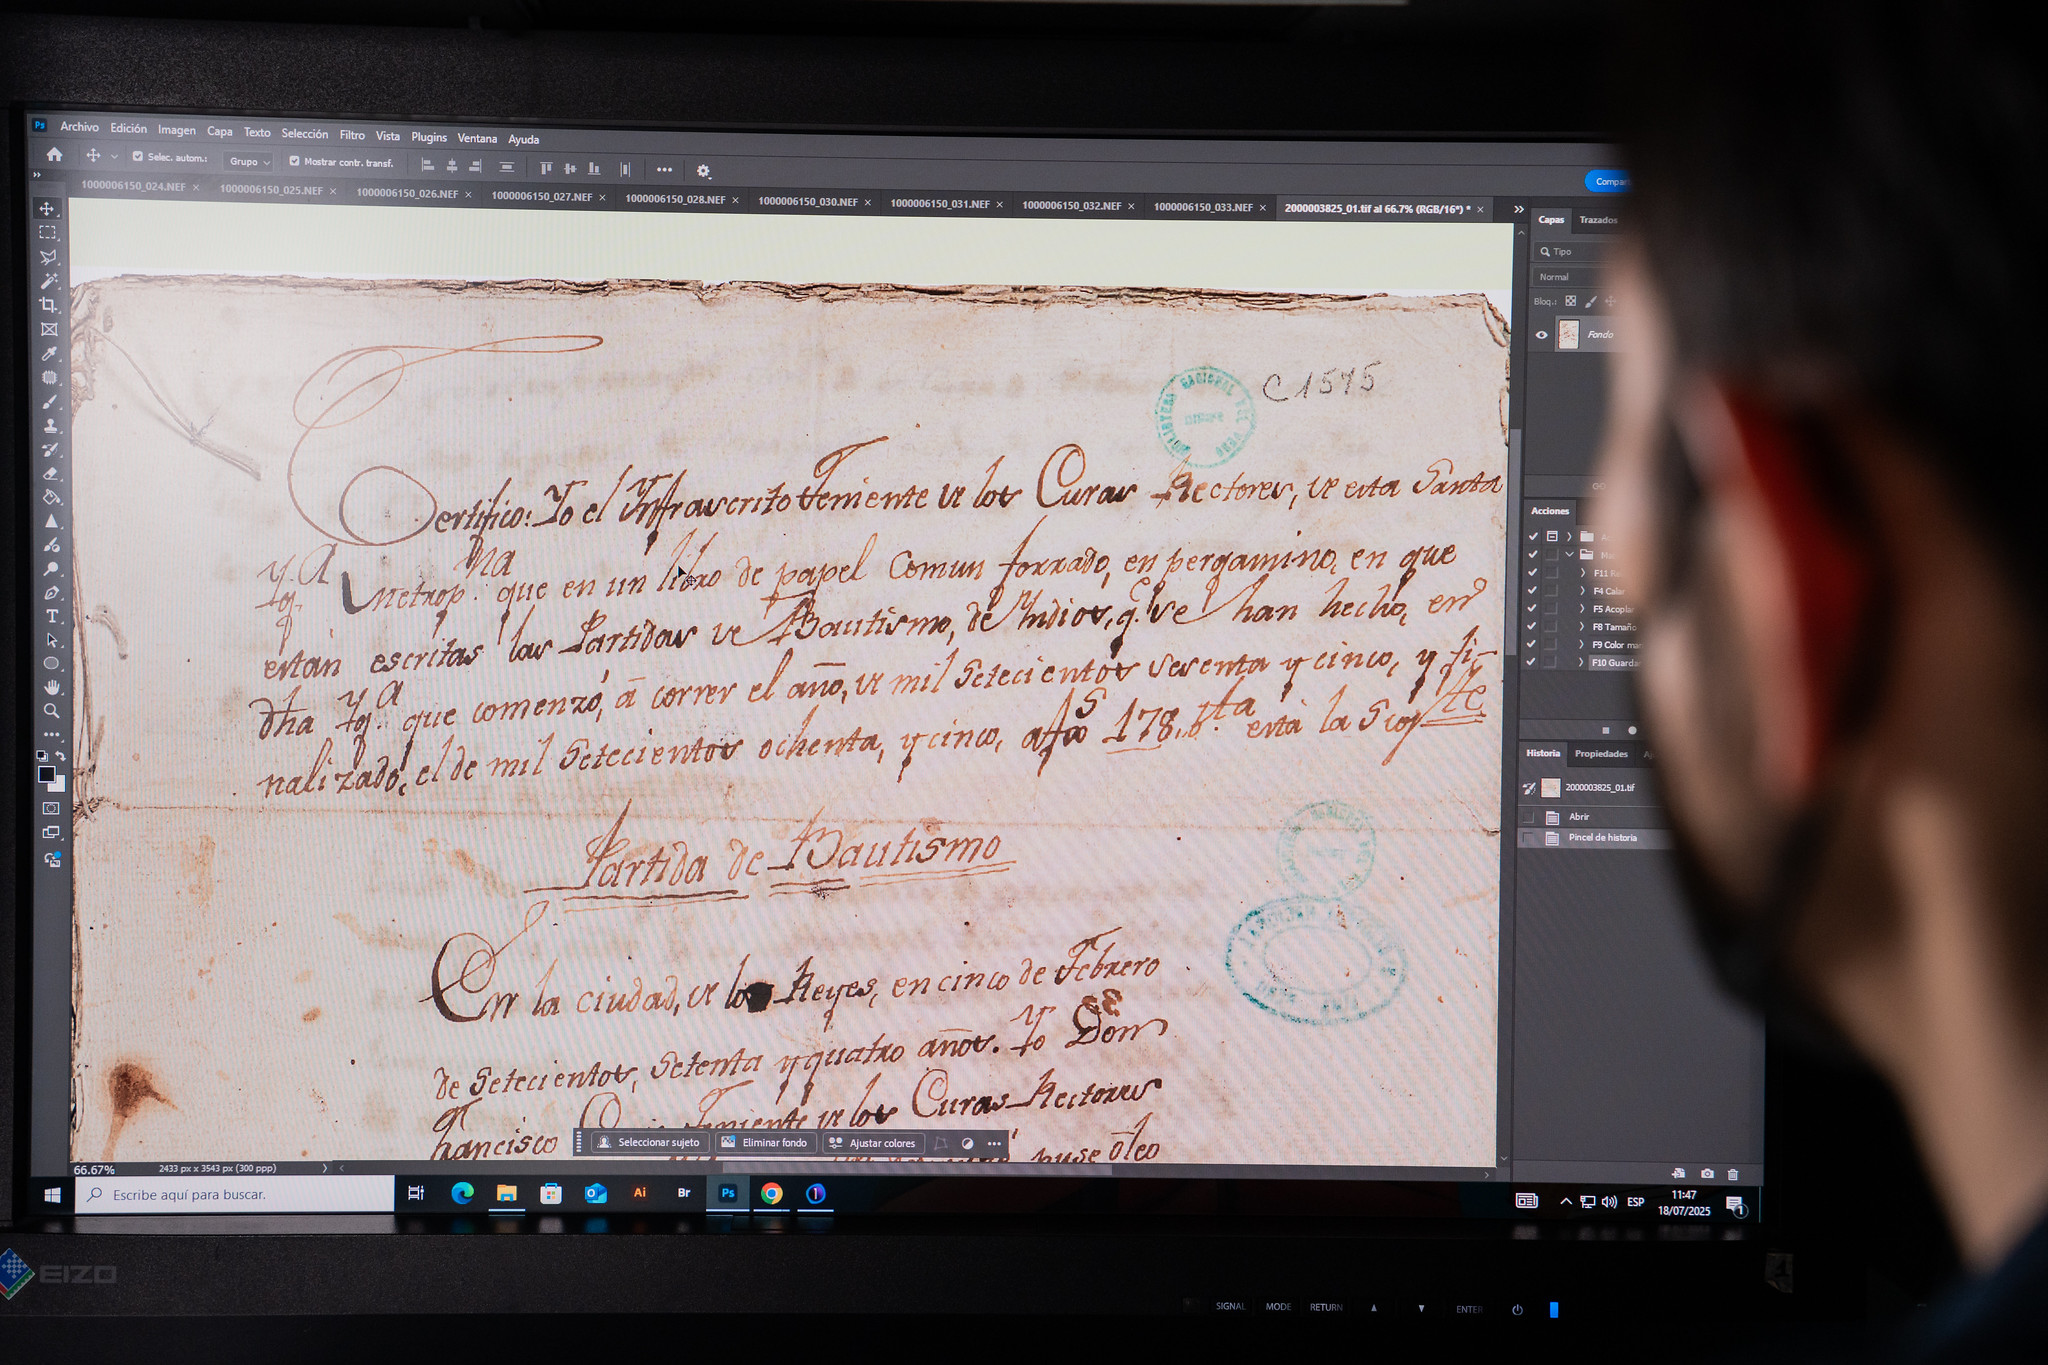 Ps Archivo Edición Imagen Capa Texto Selección Filtro Vista Plugins Ventana Ayuda
Selec. autom.: Grupo Mostrar contr. transf.
1000006150_024.NEF × 1000006150_025.NEF × 1000006150_026.NEF × 1000006150_027.NEF × 1000006150_028.NEF × 1000006150_030.NEF × 1000006150_031.NEF × 1000006150_032.NEF × 1000006150_033.NEF × 2000003825_01.tif al 66.7% (RGB/16*) * ×
C1575
Certifico: Yo el Infrascrito Teniente de los Curas Rectores, de esta Santa
Yg.ª Metrop.na que en un libro de papel comun forrado, en pergamino, en que
están escritas las Partidas de Bautismo, de Indios, q.e se han hecho, en
dha Yg.ª que comenzó, á correr el año, de mil Setecientos sesenta y cinco, y fi-
nalizado, el de mil Setecientos ochenta, y cinco, está la Sig.te
Partida de Bautismo
En la ciudad, de los Reyes, en cinco de Febrero
de Setecientos, Setenta y quatro años. Yo Don
Francisco Teniente de los Curas Rectores
puse óleo
Capas Trazados
Tipo
Normal
Bloq.:
Fondo
Acciones
F4 Calar
F5 Acoplar
F8 Tamaño
F9 Color
F10 Guardar
Historia Propiedades
2000003825_01.tif
Abrir
Pincel de historia
Seleccionar sujeto Eliminar fondo Ajustar colores
66.67% 2433 px x 3543 px (300 ppp)
Escribe aquí para buscar.
Ai Br Ps
ESP
11:47
18/07/2025
1
EIZO
SIGNAL MODE RETURN ENTER